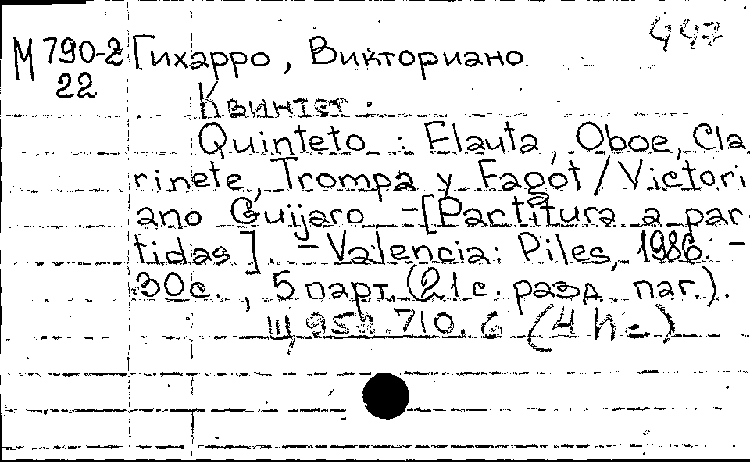 447
М 790-2 Гихарро, Викториано
22
Квинтет.
Quinteto : Flauta, Oboe, Cla
rinete, Trompa y Fagot / Victori
ano Guijaro. -[Partitura a par
tidas]. - Valencia: Piles, 1986. -
30с., 5 парт. (21с. разд. паг.).
710.6